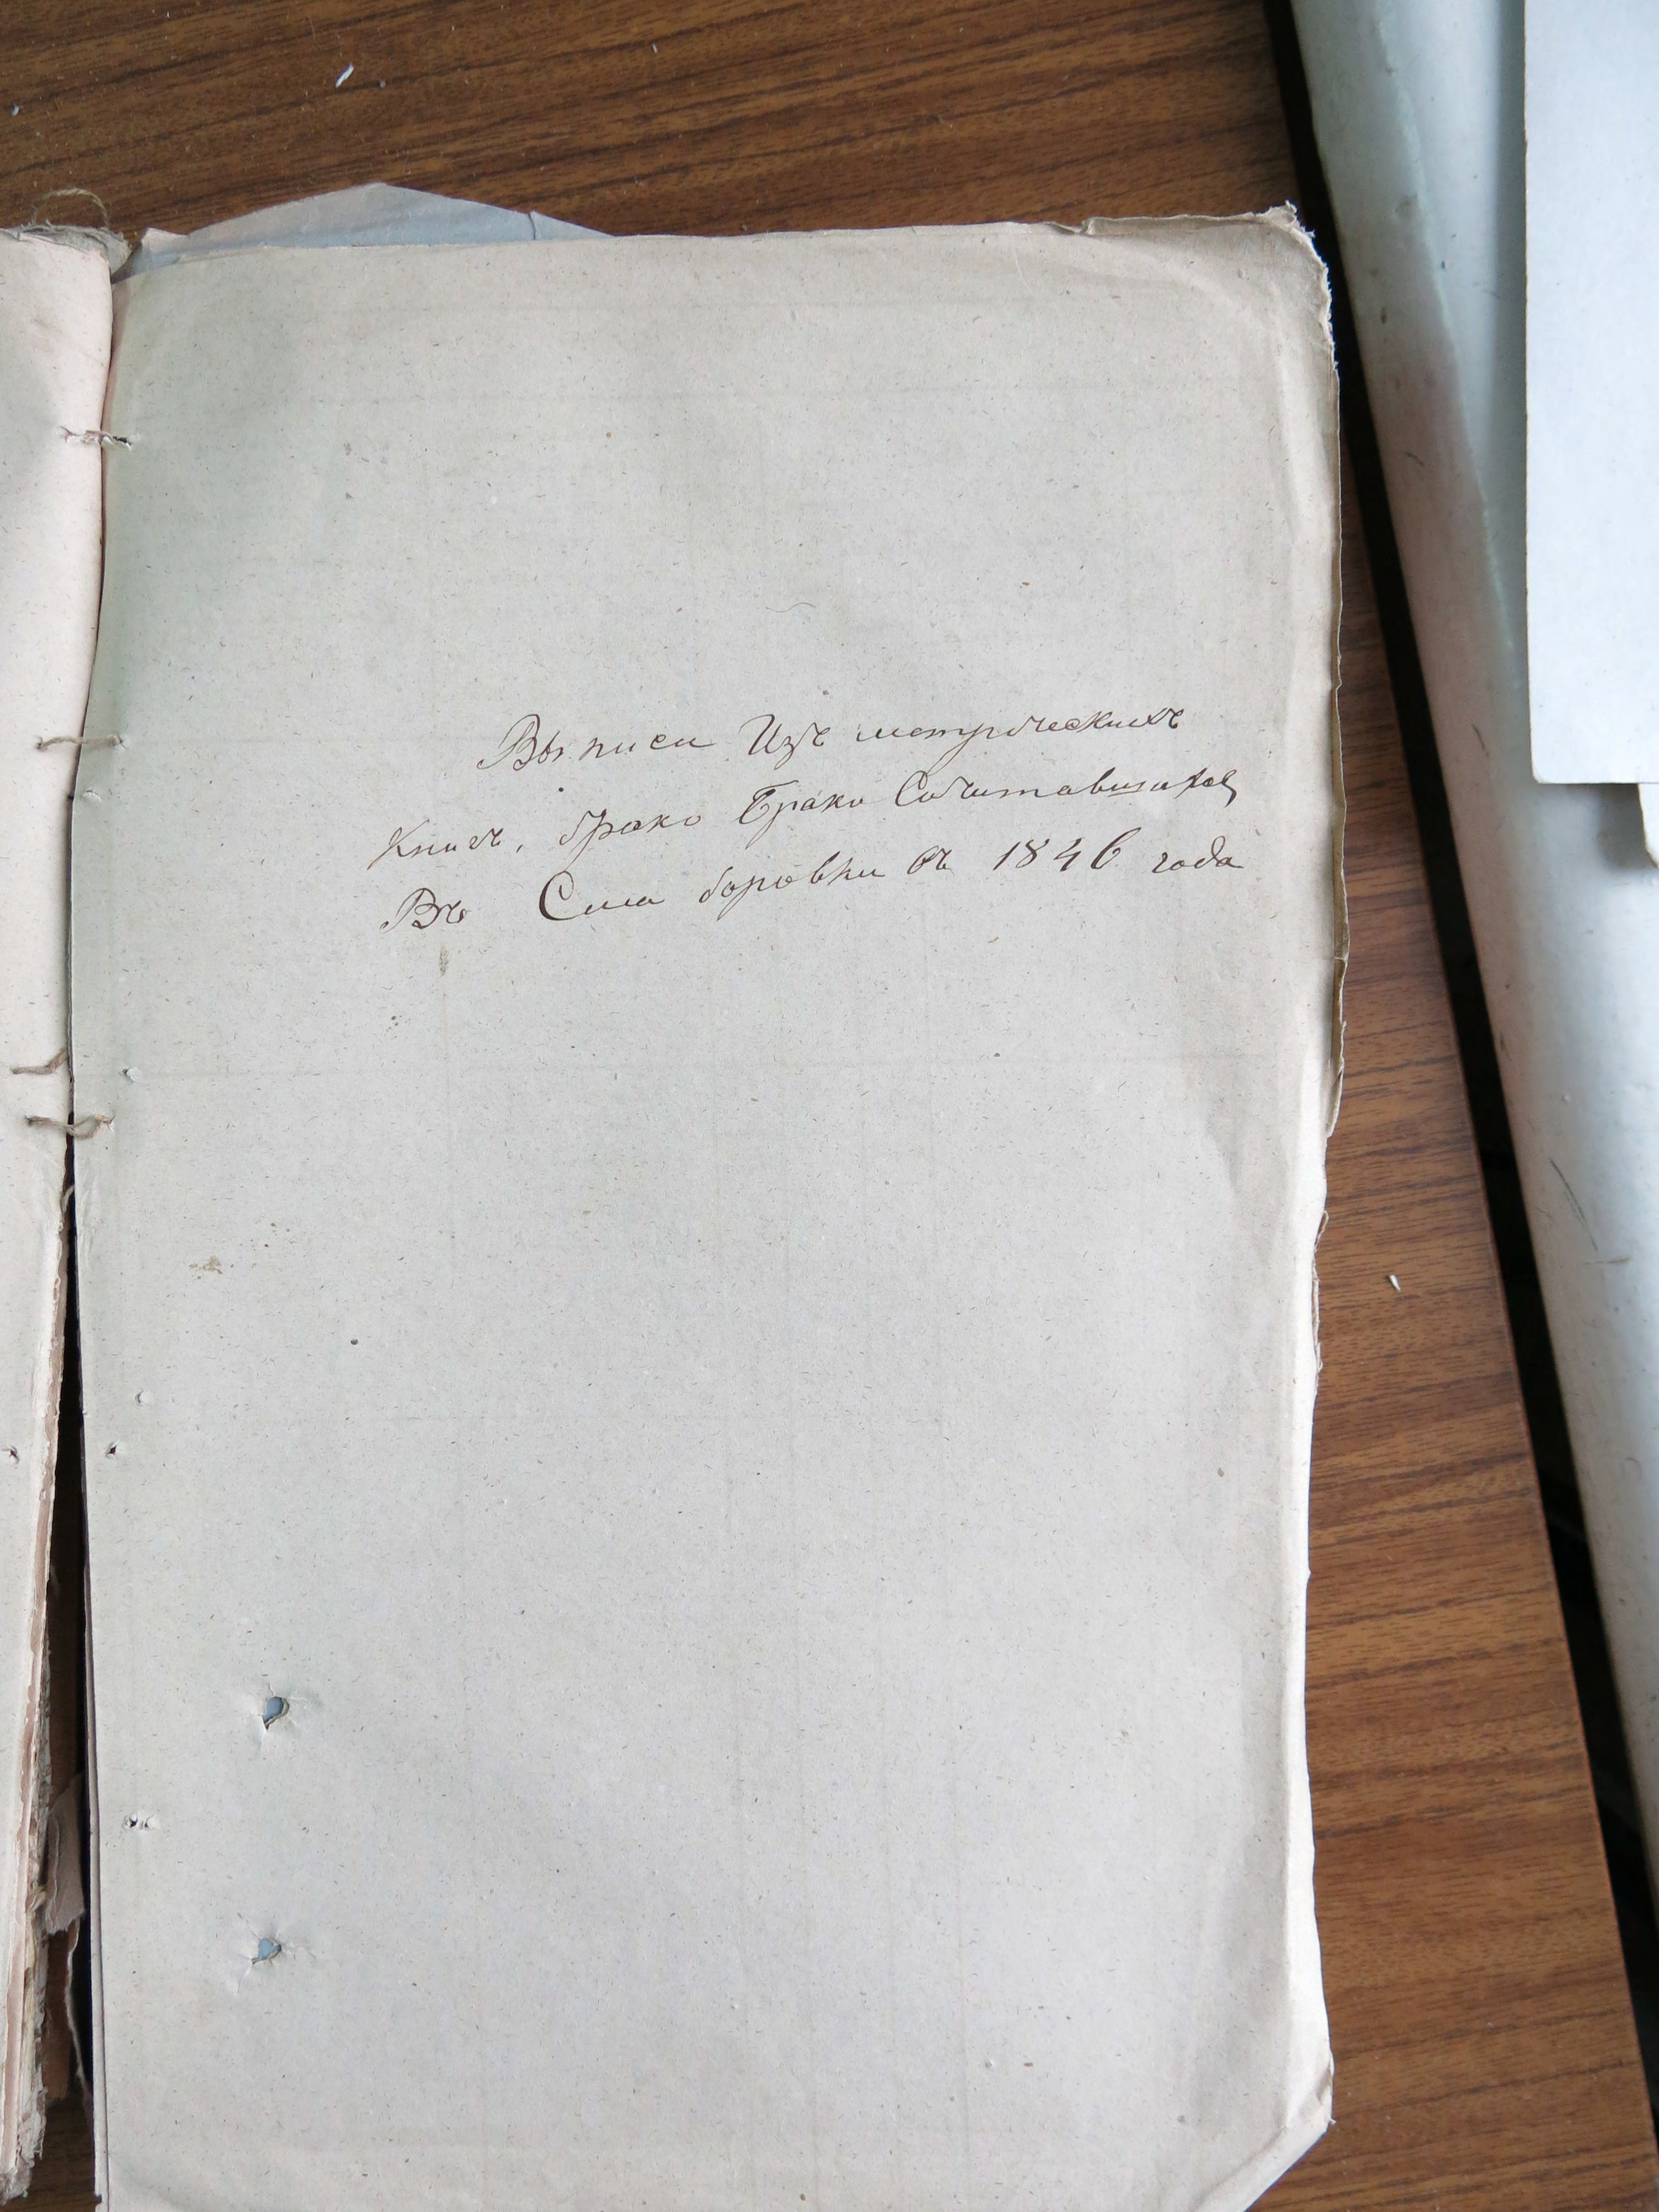 Выписи Изъ метрическихъ
Книгъ, брако Брако Сочитавшихся
Въ Села боровки съ 1846 года